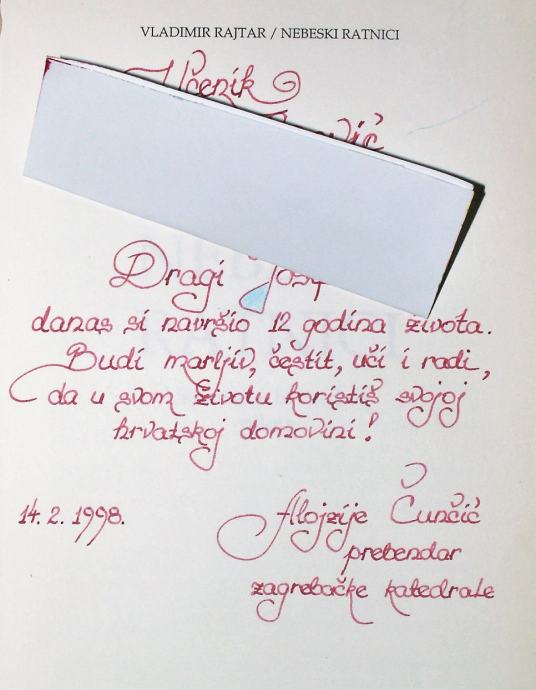 VLADIMIR RAJTAR / NEBESKI RATNICI
Učenik
Dragi
danas si navršio 12 godina života.
Budi marljiv, čestit, uči i radi,
da u svom životu koristiš svojoj
hrvatskoj domovini!
14. 2. 1998.
Alojzije Čunčić
prebendar
zagrebačke katedrale